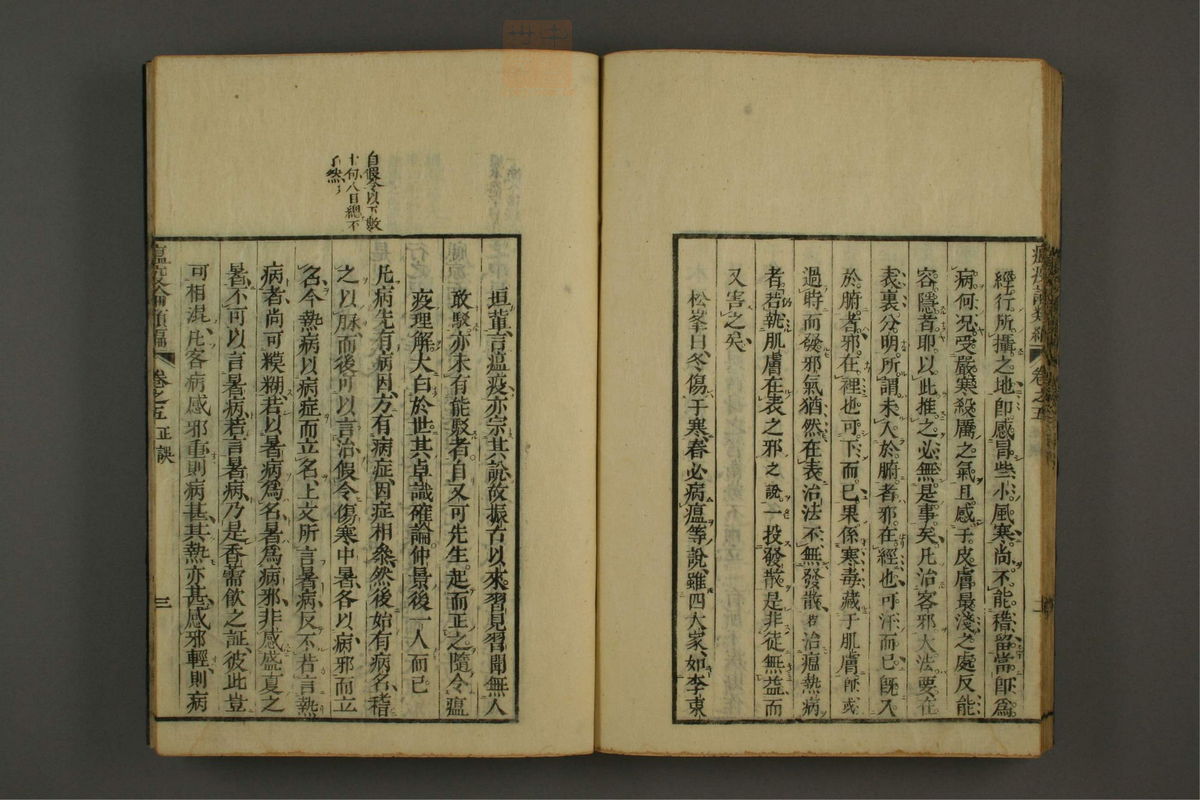 經行所攝之地即感冒些小風寒尚不能稽留當即爲
病何况受嚴寒殺厲之氣且感于皮膚最淺之處反能
容隱者耶以此推之必無是事矣凡治客邪大法要在
表裏分明所謂未入於腑者邪在經也可汗而已既入
於腑者邪在裡也可下而已果係寒毒藏于肌膚即或
過時而發邪氣猶然在表治法不無發散若治瘟熱病
者若執肌膚在表之邪之說一投發散是非徒無益而
又害之矣
松峯曰冬傷于寒春必病瘟等說雖四大家如李東
卷之五
二
垣輩言瘟疫亦宗其說故振古以來習見習聞無人
敢駁亦未有能駁者自又可先生起而正之隨令瘟
疫理解大白於世其卓識確論仲景後一人而已
凡病先有病因方有病症因症相叅然後始有病名稽
之以脉而後可以言治假令傷寒中暑各以病邪而立
名今熱病以病症而立名上文所言暑病反不若言熱
病者尚可糢糊若以暑病爲名暑爲病邪非感盛夏之
暑不可以言暑病若言暑病乃是香薷飲之証彼此豈
可相混凡客病感邪重則病甚其熱亦甚感邪輕則病
瘟疫論類編
卷之五 正誤
三
自假令以下數
十句八目總不
了然